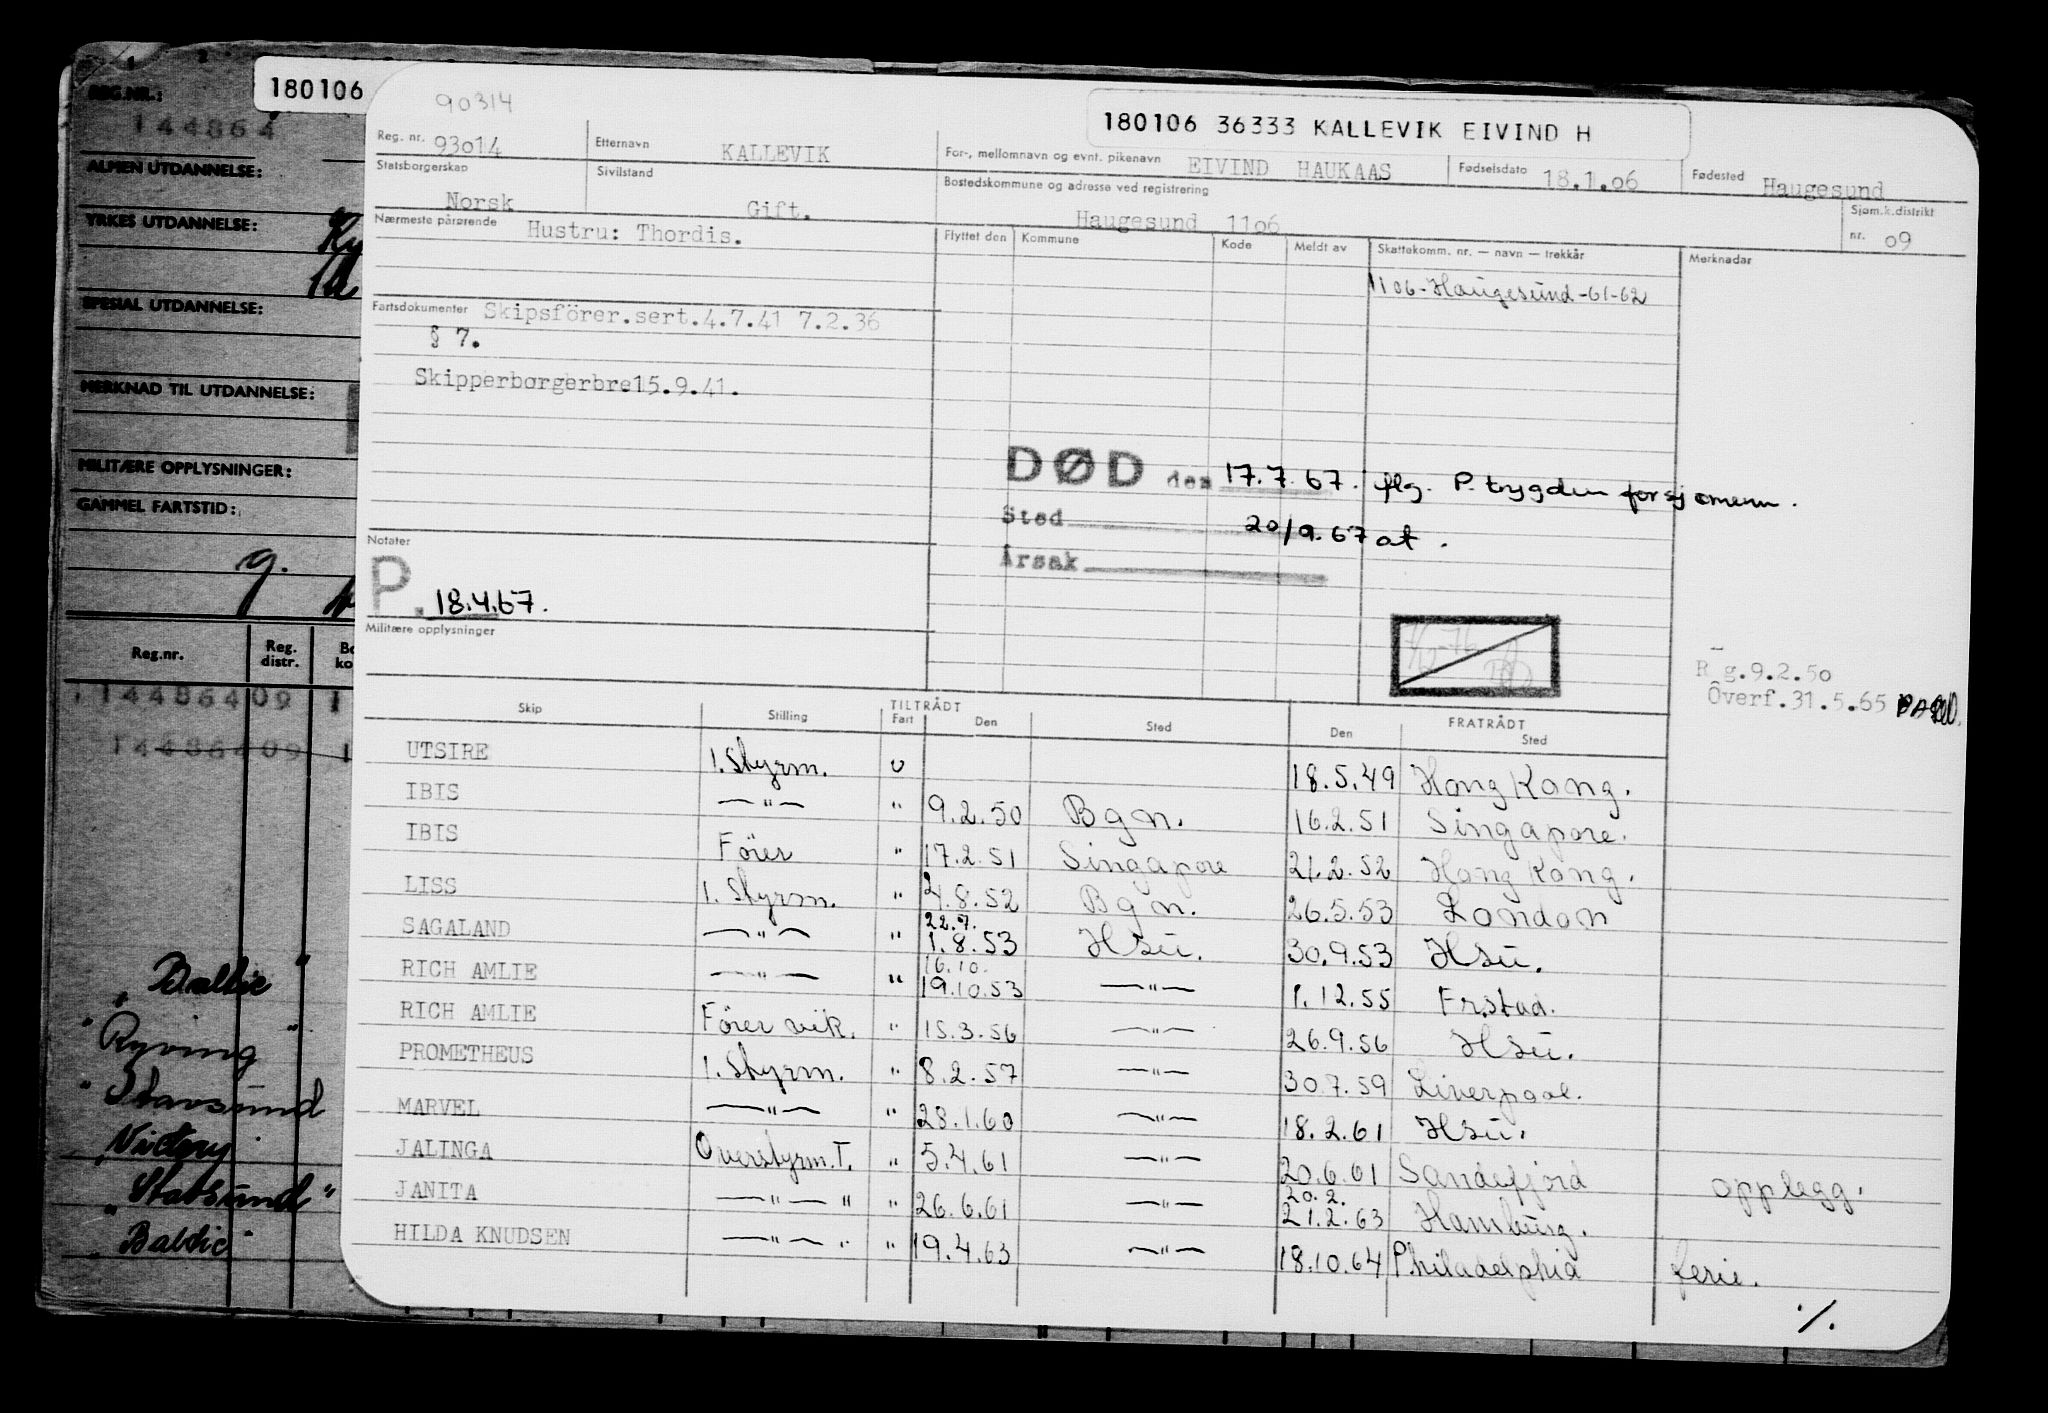 180106
90314
180106 36333 KALLEVIK EIVIND H
Reg. nr. 93014
Etternavn KALLEVIK
For-, mellomnavn og evnt. pikenavn EIVIND HAUKAAS
Fødselsdato 18.1.06
Fødested Haugesund
Statsborgerskap Norsk
Sivilstand Gift.
Bostedskommune og adresse ved registrering Haugesund 1106
Sjøm.k.distrikt nr. 09
Nærmeste pårørende Hustru: Thordis.
Flyttet den Kommune Kode Meldt av Skattekomm. nr. — navn — trekkår Merknadar
1106-Haugesund-61-62
Fartsdokumenter Skipsförer.sert.4.7.41 7.2.36
§ 7.
Skipperborgerbre15.9.41.
DØD den 17.7.67. flg. P. trygden for sjømenn.
Sted 20/9.67 at.
Årsak
Notater
P. 18.4.67.
Militære opplysninger
R g.9.2.50
Överf.31.5.65
Skip Stilling TILTRÅDT Fart Den Sted FRATRÅDT Den Sted
UTSIRE 1. Styrm. U 18.5.49 Hong Kong.
IBIS —"— " 9.2.50 Bgn. 16.2.51 Singapore.
IBIS Förer " 17.2.51 Singapore 21.2.52 Hong Kong.
LISS 1. Styrm. " 4.8.52 Bgn. 26.5.53 London
22.7.
SAGALAND —"— " 1.8.53 Hsu. 30.9.53 Hsu.
16.10.
RICH AMLIE —"— " 19.10.53 —"— 1.12.55 Fr.stad.
RICH AMLIE Förer vik. " 15.3.56 —"— 26.9.56 Hsu.
PROMETHEUS 1. Styrm. " 8.2.57 —"— 30.7.59 Liverpool.
MARVEL —"— " 28.1.60 —"— 18.2.61 Hsu.
JALINGA Overstyrm. T. " 5.4.61 —"— 20.6.61 Sandefjord opplegg.
20.2.
JANITA —"— " " 26.6.61 —"— 21.2.63 Hamburg.
HILDA KNUDSEN —"— " " 19.4.63 —"— 18.10.64 Philadelphia ferie.
./.
REG.NR.:
144864
ALMEN UTDANNELSE:
YRKES UTDANNELSE:
SPESIAL UTDANNELSE:
MERKNAD TIL UTDANNELSE:
MILITÆRE OPPLYSNINGER:
GAMMEL FARTSTID:
Reg.nr. Reg. distr.
144864 09 1
144864 09 1
" Baltic "
" Ryving "
" Stavsund
" Victory
" Statsund "
" Baltic "